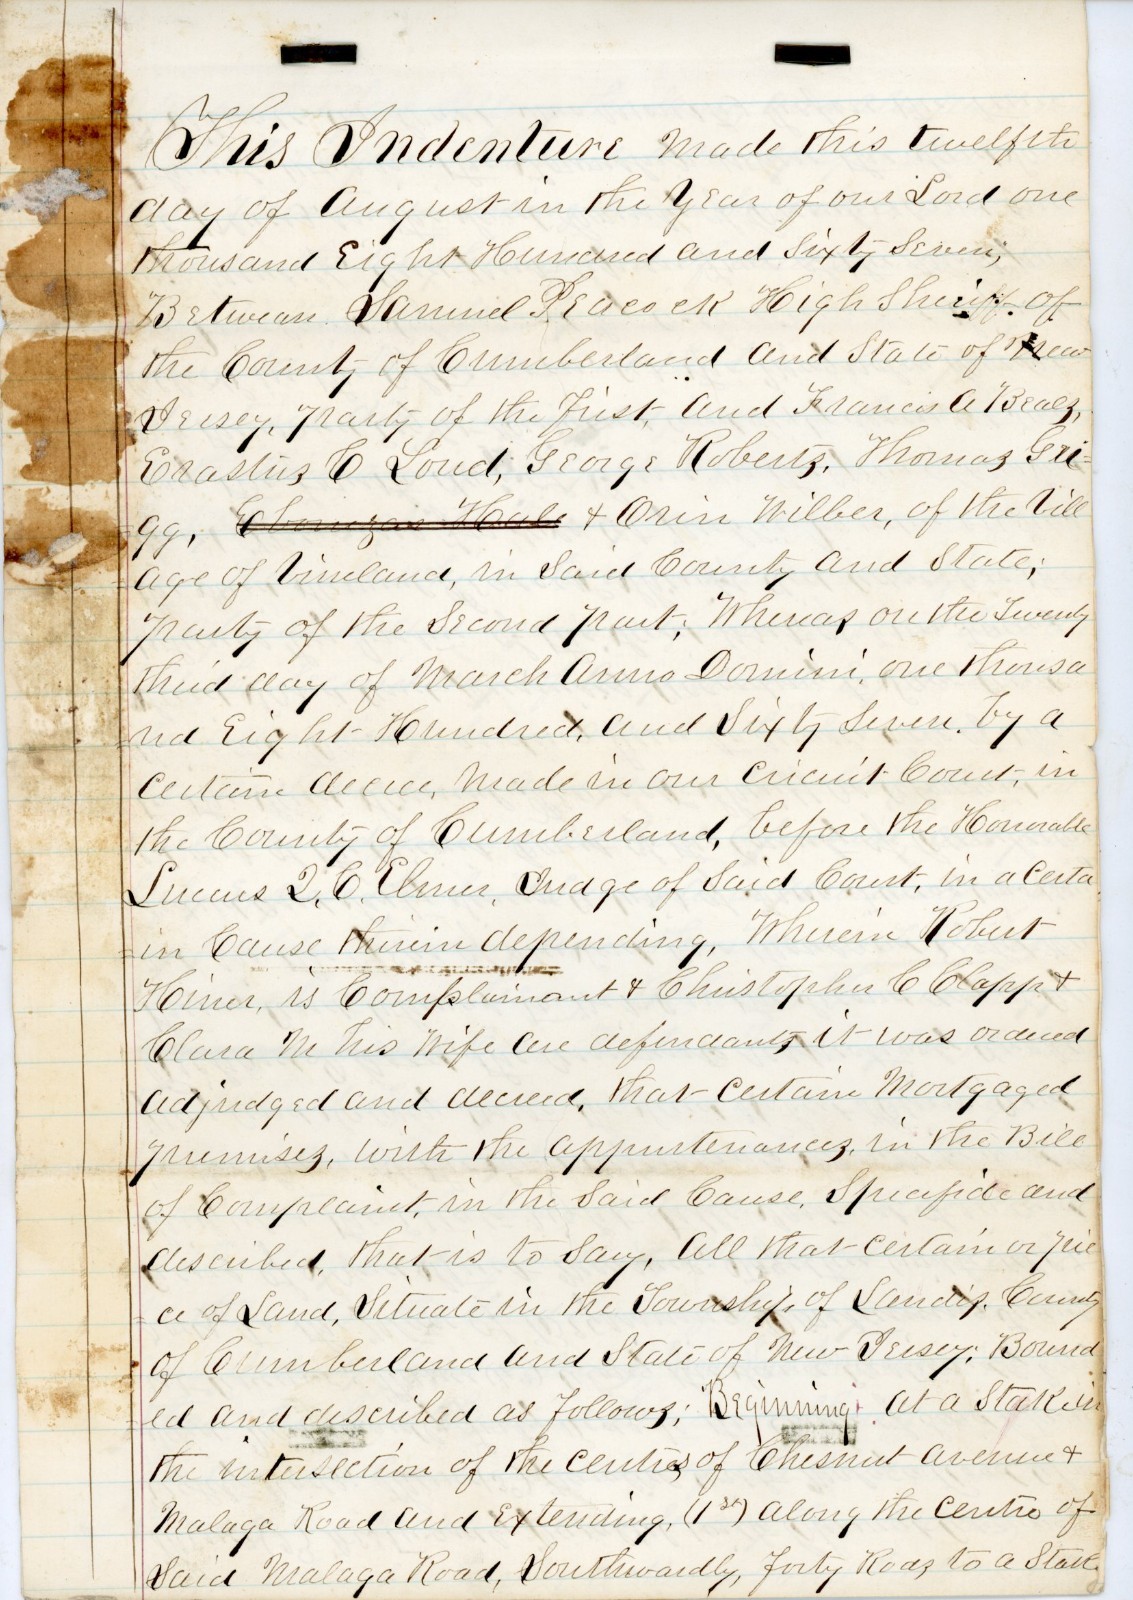 This Indenture Made this twelfth
day of August in the Year of our Lord one
thousand Eight Hundred and Sixty Seven;
Between Samuel Peacock High Sheriff of
the County of Cumberland and State of New
Jersey, Party of the First, and Francis A Beals,
Erastus C Loud, George Roberts, Thomas Gri-
gg, Ebenezar Hale & Orin Wilber, of the Vill
age of Vineland, in Said County and State;
Party of the Second part; Whereas on the Twenty
third day of March Anno Domini, one thousa
nd Eight Hundred, and Sixty Seven. by a
certain decree, Made in our circuit Court, in
the County of Cumberland, before the Honorable
Lucius Q. C. Elmer, Judge of Said Court, in a Certa
in Cause therein depending, Wherein Robert
Hiner, is Complainant & Christopher C Clapp &
Clara M his Wife are defendants, it was ordered
adjudged and decreed, that certain Mortgaged
premises, with the appurtenances, in the Bill
of Complaint, in the Said Cause, Specifide and
described, that is to Say, All that certain or pie
ce of Land, Situate in the Township, of Landis, County
of Cumberland and State of New Jersey; Bound
ed and described as follows; Beginning at a Stake in
the intersection of the centres of Chesnut avenue &
Malaga Road and Extending, (1st) along the centre of
Said Malaga Road, Southwardly, forty Rods to a Stake